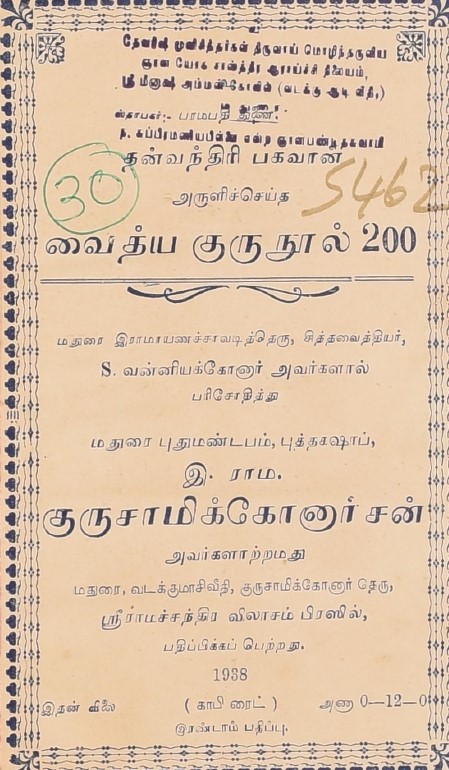 தேவரிஷி முனிசித்தர்கள் திருவாய் மொழிந்தருளிய
ஞான யோக சாஸ்த்திர ஆராய்ச்சி நிலையம்,
ஸ்ரீ மீனாக்ஷி அம்மன்கோவில் (வடக்கு ஆடி வீதி,)
ஸ்தாபகர்:- பாமபதி
சுப்பிரமணியபிள்ளை என்ற ஞானபண்டிதசுவாமி
தன்வந்திரி பகவான்
30
5462
அருளிச்செய்த
வைத்ய குருநூல் 200
மதுரை இராமாயணச்சாவடித்தெரு, சித்தவைத்தியர்,
S. வன்னியக்கோனார் அவர்களால்
பரிசோதித்து
மதுரை புதுமண்டபம், புத்தகஷாப்,
இ. ராம.
குருசாமிக்கோனார்சன்
அவர்களாற்றமது
மதுரை, வடக்குமாசிவீதி, குருசாமிக்கோனார் தெரு,
ஸ்ரீராமச்சந்திர விலாசம் பிரஸில்,
பதிப்பிக்கப் பெற்றது.
1938
இதன் விலை ( காபி ரைட் ) அணா 0—12—0
இரண்டாம் பதிப்பு.